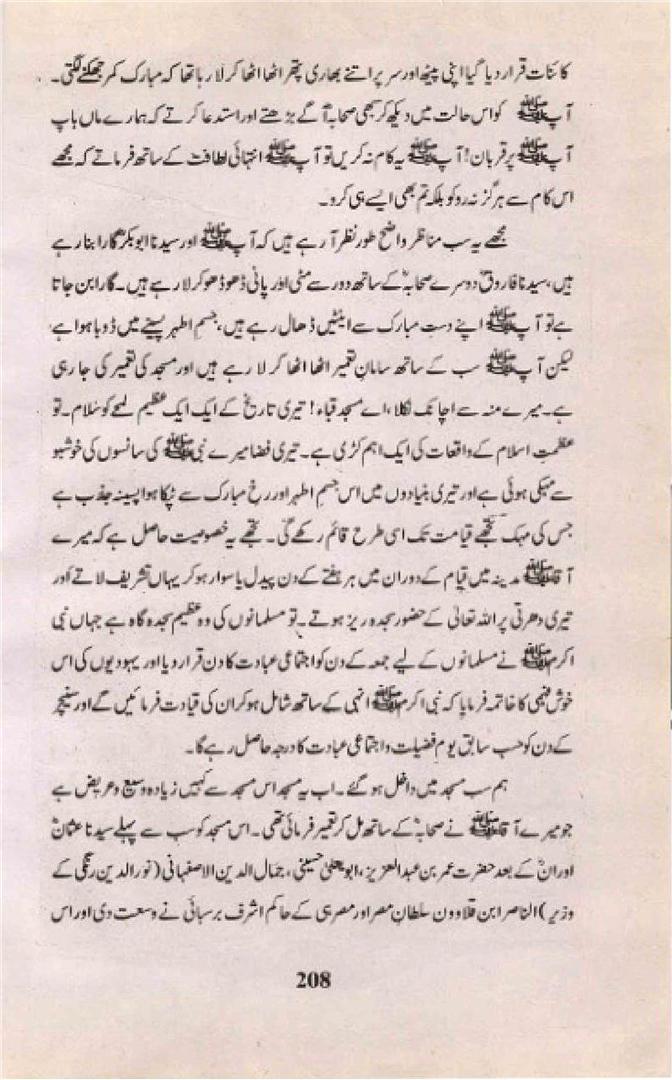 کائنات قرار دیا گیا اپنی پیٹھ اور سر پر اتنے بھاری پتھر اٹھا اٹھا کر لا رہا تھا کہ مبارک کمر جھکنے لگتی۔
آپ ﷺ کو اس حالت میں دیکھ کر بھی صحابہؓ آگے بڑھتے اور استدعا کرتے کہ ہمارے ماں باپ
آپ ﷺ پر قربان! آپ ﷺ یہ کام نہ کریں تو آپ ﷺ انتہائی لطافت کے ساتھ فرماتے کہ مجھے
اس کام سے ہرگز نہ روکو بلکہ تم بھی ایسے ہی کرو۔
مجھے یہ سب مناظر واضح طور نظر آ رہے ہیں کہ آپ ﷺ اور سیدنا ابوبکرؓ گارا بنا رہے
ہیں، سیدنا فاروقؓ دوسرے صحابہؓ کے ساتھ دور سے مٹی اور پانی ڈھو ڈھو کر لا رہے ہیں۔ گارا بن جاتا
ہے تو آپ ﷺ اپنے دستِ مبارک سے اینٹیں ڈھال رہے ہیں، جسمِ اطہر پسینے میں ڈوبا ہوا ہے
لیکن آپ ﷺ سب کے ساتھ سامانِ تعمیر اٹھا اٹھا کر لا رہے ہیں اور مسجد کی تعمیر کی جا رہی
ہے۔ میرے منہ سے اچانک نکلا، اے مسجد قباء! تیری تاریخ کے ایک ایک عظیم لمحے کو سلام۔ تو
عظمتِ اسلام کے واقعات کی ایک اہم کڑی ہے۔ تیری فضا میرے نبی ﷺ کی سانسوں کی خوشبو
سے مہکی ہوئی ہے اور تیری بنیادوں میں اس جسمِ اطہر اور رخِ مبارک سے ٹپکا ہوا پسینہ جذب ہے
جس کی مہک تجھے قیامت تک اسی طرح قائم رکھے گی۔ تجھے یہ خصوصیت حاصل ہے کہ میرے
آقا ﷺ مدینہ میں قیام کے دوران میں ہر ہفتے کے دن پیدل یا سوار ہو کر یہاں تشریف لاتے اور
تیری دھرتی پر اللہ تعالیٰ کے حضور سجدہ ریز ہوتے۔ تو مسلمانوں کی وہ عظیم سجدہ گاہ ہے جہاں نبی
اکرم ﷺ نے مسلمانوں کے لیے جمعہ کے دن کو اجتماعی عبادت کا دن قرار دیا اور یہودیوں کی اس
خوش فہمی کا خاتمہ فرمایا کہ نبی اکرم ﷺ انہی کے ساتھ شامل ہو کر ان کی قیادت فرمائیں گے اور سنیچر
کے دن کو حسب سابق یومِ فضیلت و اجتماعی عبادت کا درجہ حاصل رہے گا۔
ہم سب مسجد میں داخل ہو گئے۔ اب یہ مسجد اس مسجد سے کہیں زیادہ وسیع و عریض ہے
جو میرے آقا ﷺ نے صحابہؓ کے ساتھ مل کر تعمیر فرمائی تھی۔ اس مسجد کو سب سے پہلے سیدنا عثمانؓ
اور انؓ کے بعد حضرت عمر بن عبدالعزیز، ابویعلیٰ حسینی، جمال الدین الاصفہانی (نورالدین زنگی کے
وزیر) الناصر ابن قلاوون سلطانِ مصر اور مصر ہی کے حاکم اشرف برسبائی نے وسعت دی اور اس
208